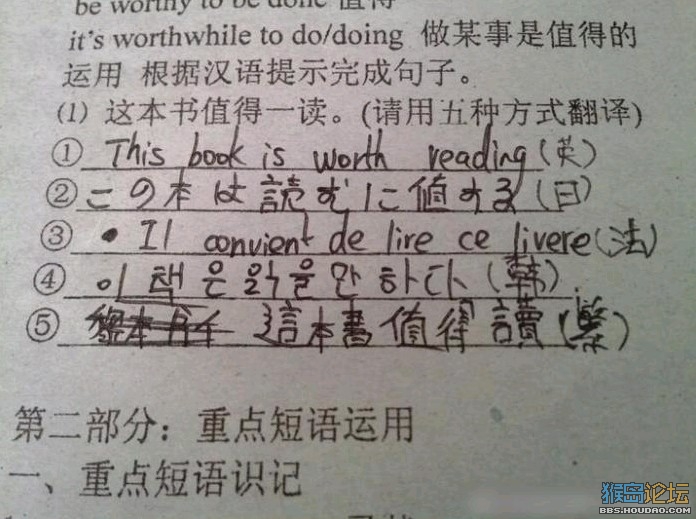 be worthy to be done 值得
it's worthwhile to do/doing 做某事是值得的
运用 根据汉语提示完成句子。
(1) 这本书值得一读。(请用五种方式翻译)
① This book is worth reading (英)
② この本は読むに値する (日)
③ • Il convient de lire ce livere (法)
④ 이 책은 읽을만 하다 (韩)
⑤ 這本書值得讀 (繁)
第二部分：重点短语运用
一、重点短语识记
猴岛论坛
BBS.HOUDAO.COM